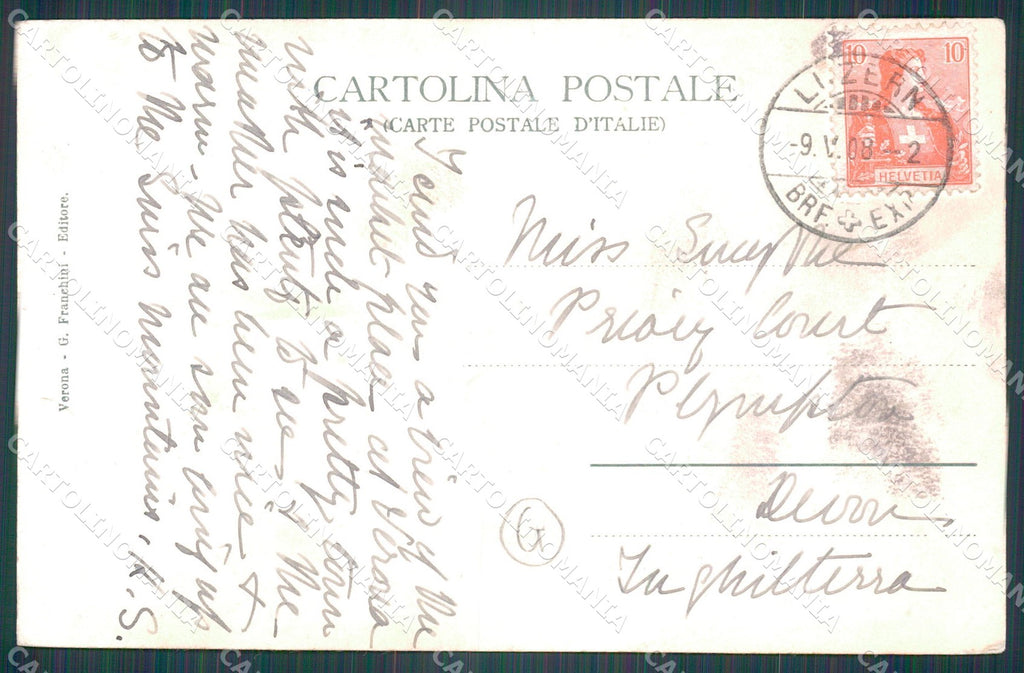 CARTOLINA POSTALE
(CARTE POSTALE D'ITALIE)
10 10
HELVETIA
LUZERN
-9.V.08 - 2
BRF. EXP.
Miss
Priory Court
Plympton
Devon
Inghilterra
I send you a view of the
market-place at Verona
it is such a pretty town
with plenty to see & the
weather has been nice &
warm - We are now on
to the Swiss mountains. S.
Verona - G. Franchini - Editore.
CARTOLINOMANIA